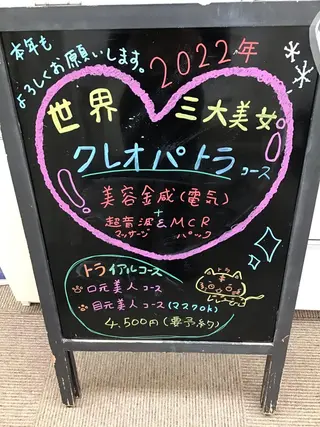 本年も
よろしくお願いします。
2022年
世界
三大美女
クレオパトラコース
美容金咸(電気)
+
超音波&MCR
マッサージ パック
トライアルコース
口元美人コース
目元美人コース(マスクok)
4,500円(要予約)
トラ